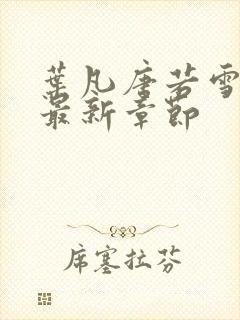 葉凡唐若雪
最新章節
席塞拉芬